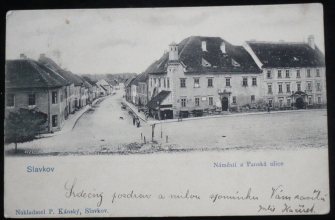 Slavkov
Náměstí a Panská ulice
Nakladatel P. Kánský, Slavkov.
Srdečný pozdrav a milou vzpomínku Vám